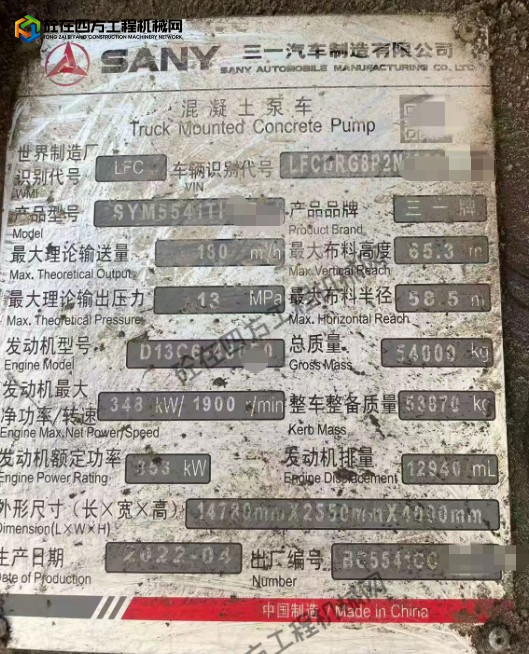 砼在四方工程机械网
TONG ZAI SI FANG CONSTRUCTION MACHINERY NETWORK
SANY 三一汽车制造有限公司
SANY AUTOMOBILE MANUFACTURING CO., LTD.
混凝土泵车
Truck Mounted Concrete Pump
世界制造厂
识别代号 LFC 车辆识别代号 LFCDRG8P2N
WMI VIN
产品型号 SYM5541T 产品品牌 三一牌
Model Product Brand
最大理论输送量 180 m³/h 最大布料高度 65.3 m
Max. Theoretical Output Max. Vertical Reach
最大理论输出压力 13 MPa 最大布料半径 58.5 m
Max. Theoretical Pressure Max. Horizontal Reach
发动机型号 D13C 总质量 54000 kg
Engine Model Gross Mass
发动机最大
净功率/转速 348 kW/ 1900 r/min 整车整备质量 53870 kg
Engine Max.Net Power/Speed Kerb Mass
发动机额定功率 353 kW 发动机排量 12940 mL
Engine Power Rating Engine Displacement
外形尺寸(长×宽×高) 14780mm×2550mm×4000mm
Dimension(L×W×H)
生产日期 2022-04 出厂编号 BC5541CC
Date of Production Number
中国制造 / Made in China
砼在四方工程机械网
砼在四方工程机械网